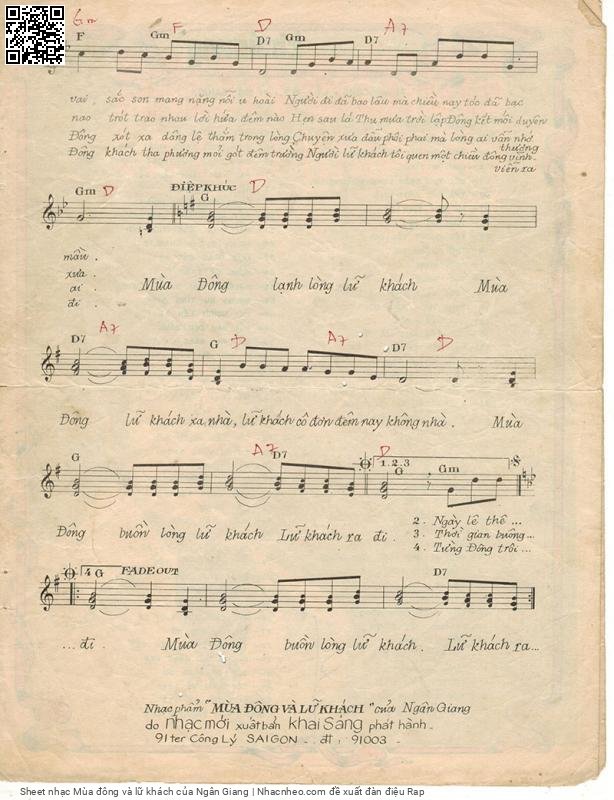 Gm F D A7
F Gm D7 Gm D7
vai, sắc son mang nặng nỗi u hoài Người đi đã bao lâu mà chiều nay tóc đã bạc
nao trót trao nhau lời hứa đêm nào Hẹn sau lá Thu mưa trời lập Đông kết mối duyên
Đông xót xa dâng lệ thắm trong lòng Chuyện xưa dẫu phôi phai mà lòng ai vẫn nhớ thương
Đông khách tha phương mỏi gót đêm trường Người lữ khách tôi quen một chiều đông vĩnh viễn ra
Gm D ĐIỆP KHÚC G D
mầu.
xưa.
ai.
đi.
Mùa Đông lạnh lòng lữ khách Mùa
D7 A7 G D A7 D7 D
Đông lữ khách xa nhà, lữ khách cô đơn đêm nay không nhà. Mùa
G A7 D7 1.2.3 D G Gm
Đông buồn lòng lữ khách Lữ khách ra đi.
2. Ngày lê thê...
3. Thời gian buông...
4. Từng Đông trôi...
4 G FADE OUT D7
...đi. Mùa Đông buồn lòng lữ khách. Lữ khách ra...
Nhạc phẩm "MÙA ĐÔNG VÀ LỮ KHÁCH" của Ngân Giang
do nhạc mới xuất bản khai Sáng phát hành.
91 ter Công Lý SAIGON .. đt: 91003 .
Sheet nhạc Mùa đông và lữ khách của Ngân Giang | Nhacnheo.com đề xuất đàn điệu Rap